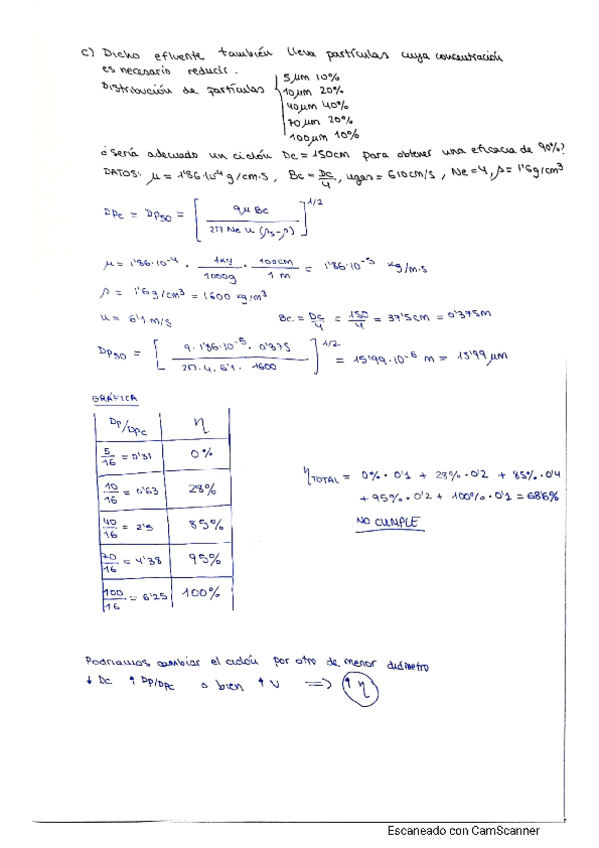 c) Dicho efluente también lleva partículas cuya concentración
es necesario reducir.
Distribución de partículas { 5 µm 10%
10 µm 20%
40 µm 40%
70 µm 20%
100 µm 10%
¿ Sería adecuado un ciclón Dc = 150cm para obtener una eficacia de 90%?
DATOS: µ = 1'86·10⁻⁴ g/cm·s, Bc = Dc/4, ugas = 610cm/s, Ne = 4, ρ = 1'6g/cm³
Dpc = Dp50 = [ 9µ Bc / 2π Ne u (ρs-ρ) ]^1/2
µ = 1'86·10⁻⁴ · 1kg/1000g · 100cm/1m = 1'86·10⁻⁵ kg/m·s
ρ = 1'6 g/cm³ = 1600 kg/m³
u = 6'1 m/s Bc = Dc/4 = 150/4 = 37'5cm = 0'375m
Dp50 = [ 9·1'86·10⁻⁵·0'375 / 2π·4·6'1·1600 ]^1/2 = 15'99·10⁻⁶ m = 15'99 µm
GRÁFICA
Dp/Dpc η
5/16 = 0'31 0%
10/16 = 0'63 28%
40/16 = 2'5 85%
70/16 = 4'38 95%
100/16 = 6'25 100%
ηTOTAL = 0%·0'1 + 28%·0'2 + 85%·0'4
+ 95%·0'2 + 100%·0'1 = 68'6%
NO CUMPLE
Podríamos cambiar el ciclón por otro de menor diámetro
↓ Dc ↑ Dp/Dpc o bien ↑ V => ↑ η
Escaneado con CamScanner